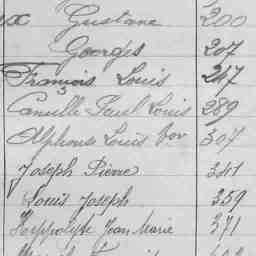 Gustave 200
Georges 207
François Louis 247
Camille Paul Louis 289
Alphonse Louis 307
Joseph Pierre 341
Louis Joseph 359
Hippolyte Jean Marie 371